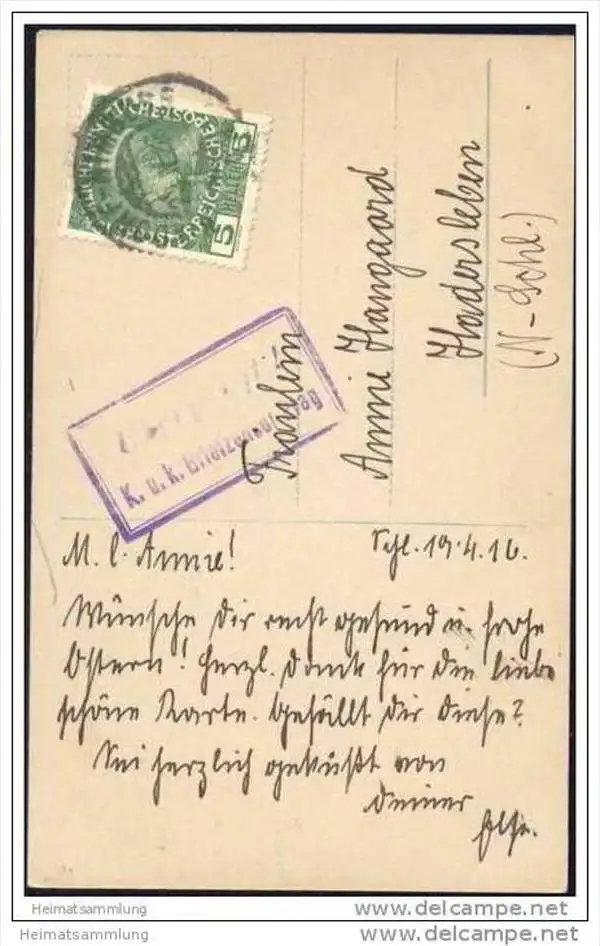 5 5
HELLER
K. u. k. Briefzensur Prag
Fräulein
Annie Haugaard
Hadersleben
(N-Schl.)
M. l. Annie! Schl. 19.4.16.
Wünsche Dir recht gesund u. frohe
Ostern! Herzl. Dank für die liebe
schöne Karte. Gefällt Dir diese?
Sei herzlich geküßt von
Deiner
Else.
Heimatsammlung www.delcampe.net
Heimatsammlung www.delcampe.net